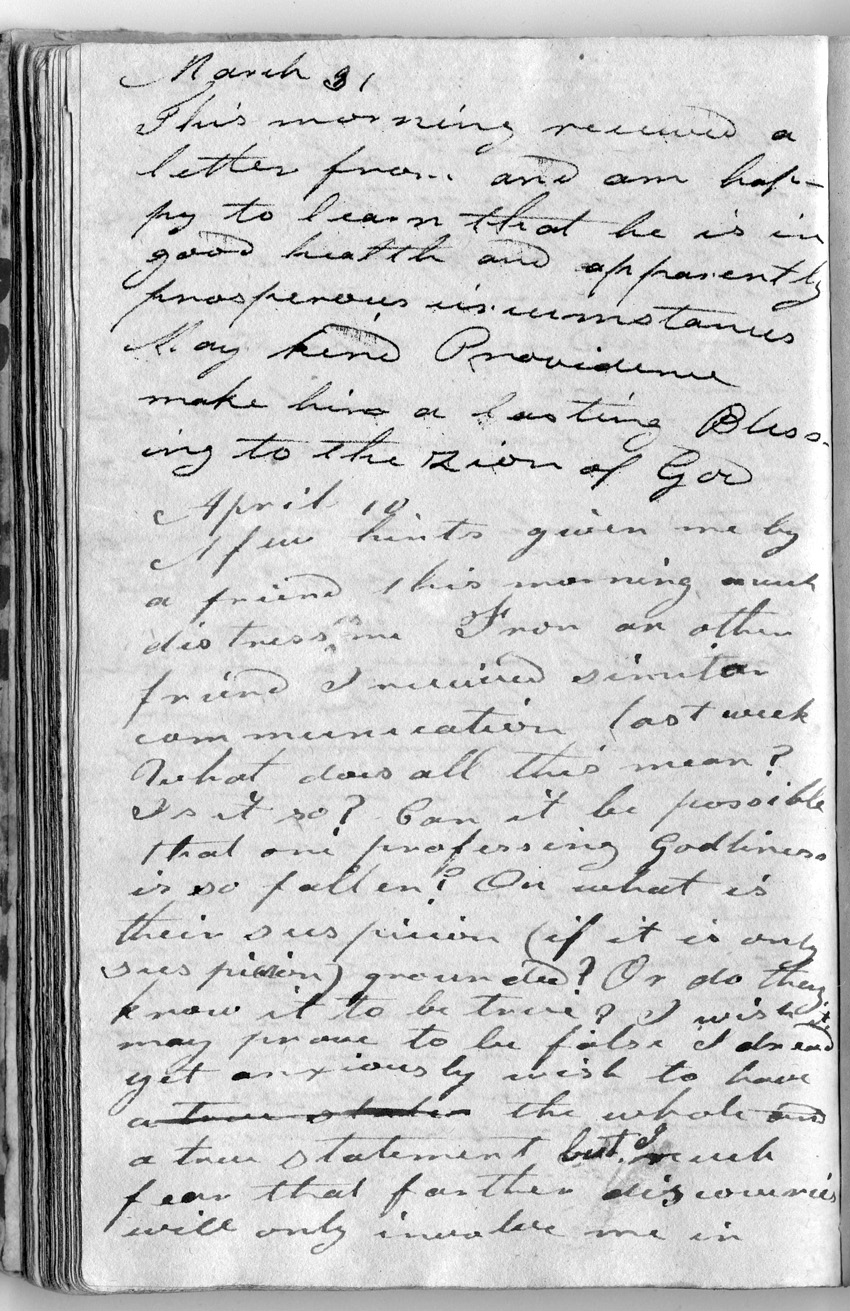 March 31
This morning received a
letter from and am hap-
py to learn that he is in
good health and apparently
prosperous circumstances
May kind Providence
make him a lasting Bless-
ing to the Zion of God
April 10
A few hints given me by
a friend this morning much
distress me From an other
friend I received similar
communication last week
What does all this mean?
Is it so? Can it be possible
that one professing Godliness
is so fallen? On what is
their suspicion (if it is only
suspicion) grounded? Or do they
know it to be true? I wish it
may prove to be false I dread
yet anxiously wish to have
a true state the whole and
a true statement but I much
fear that farther discoveries
will only involve me in